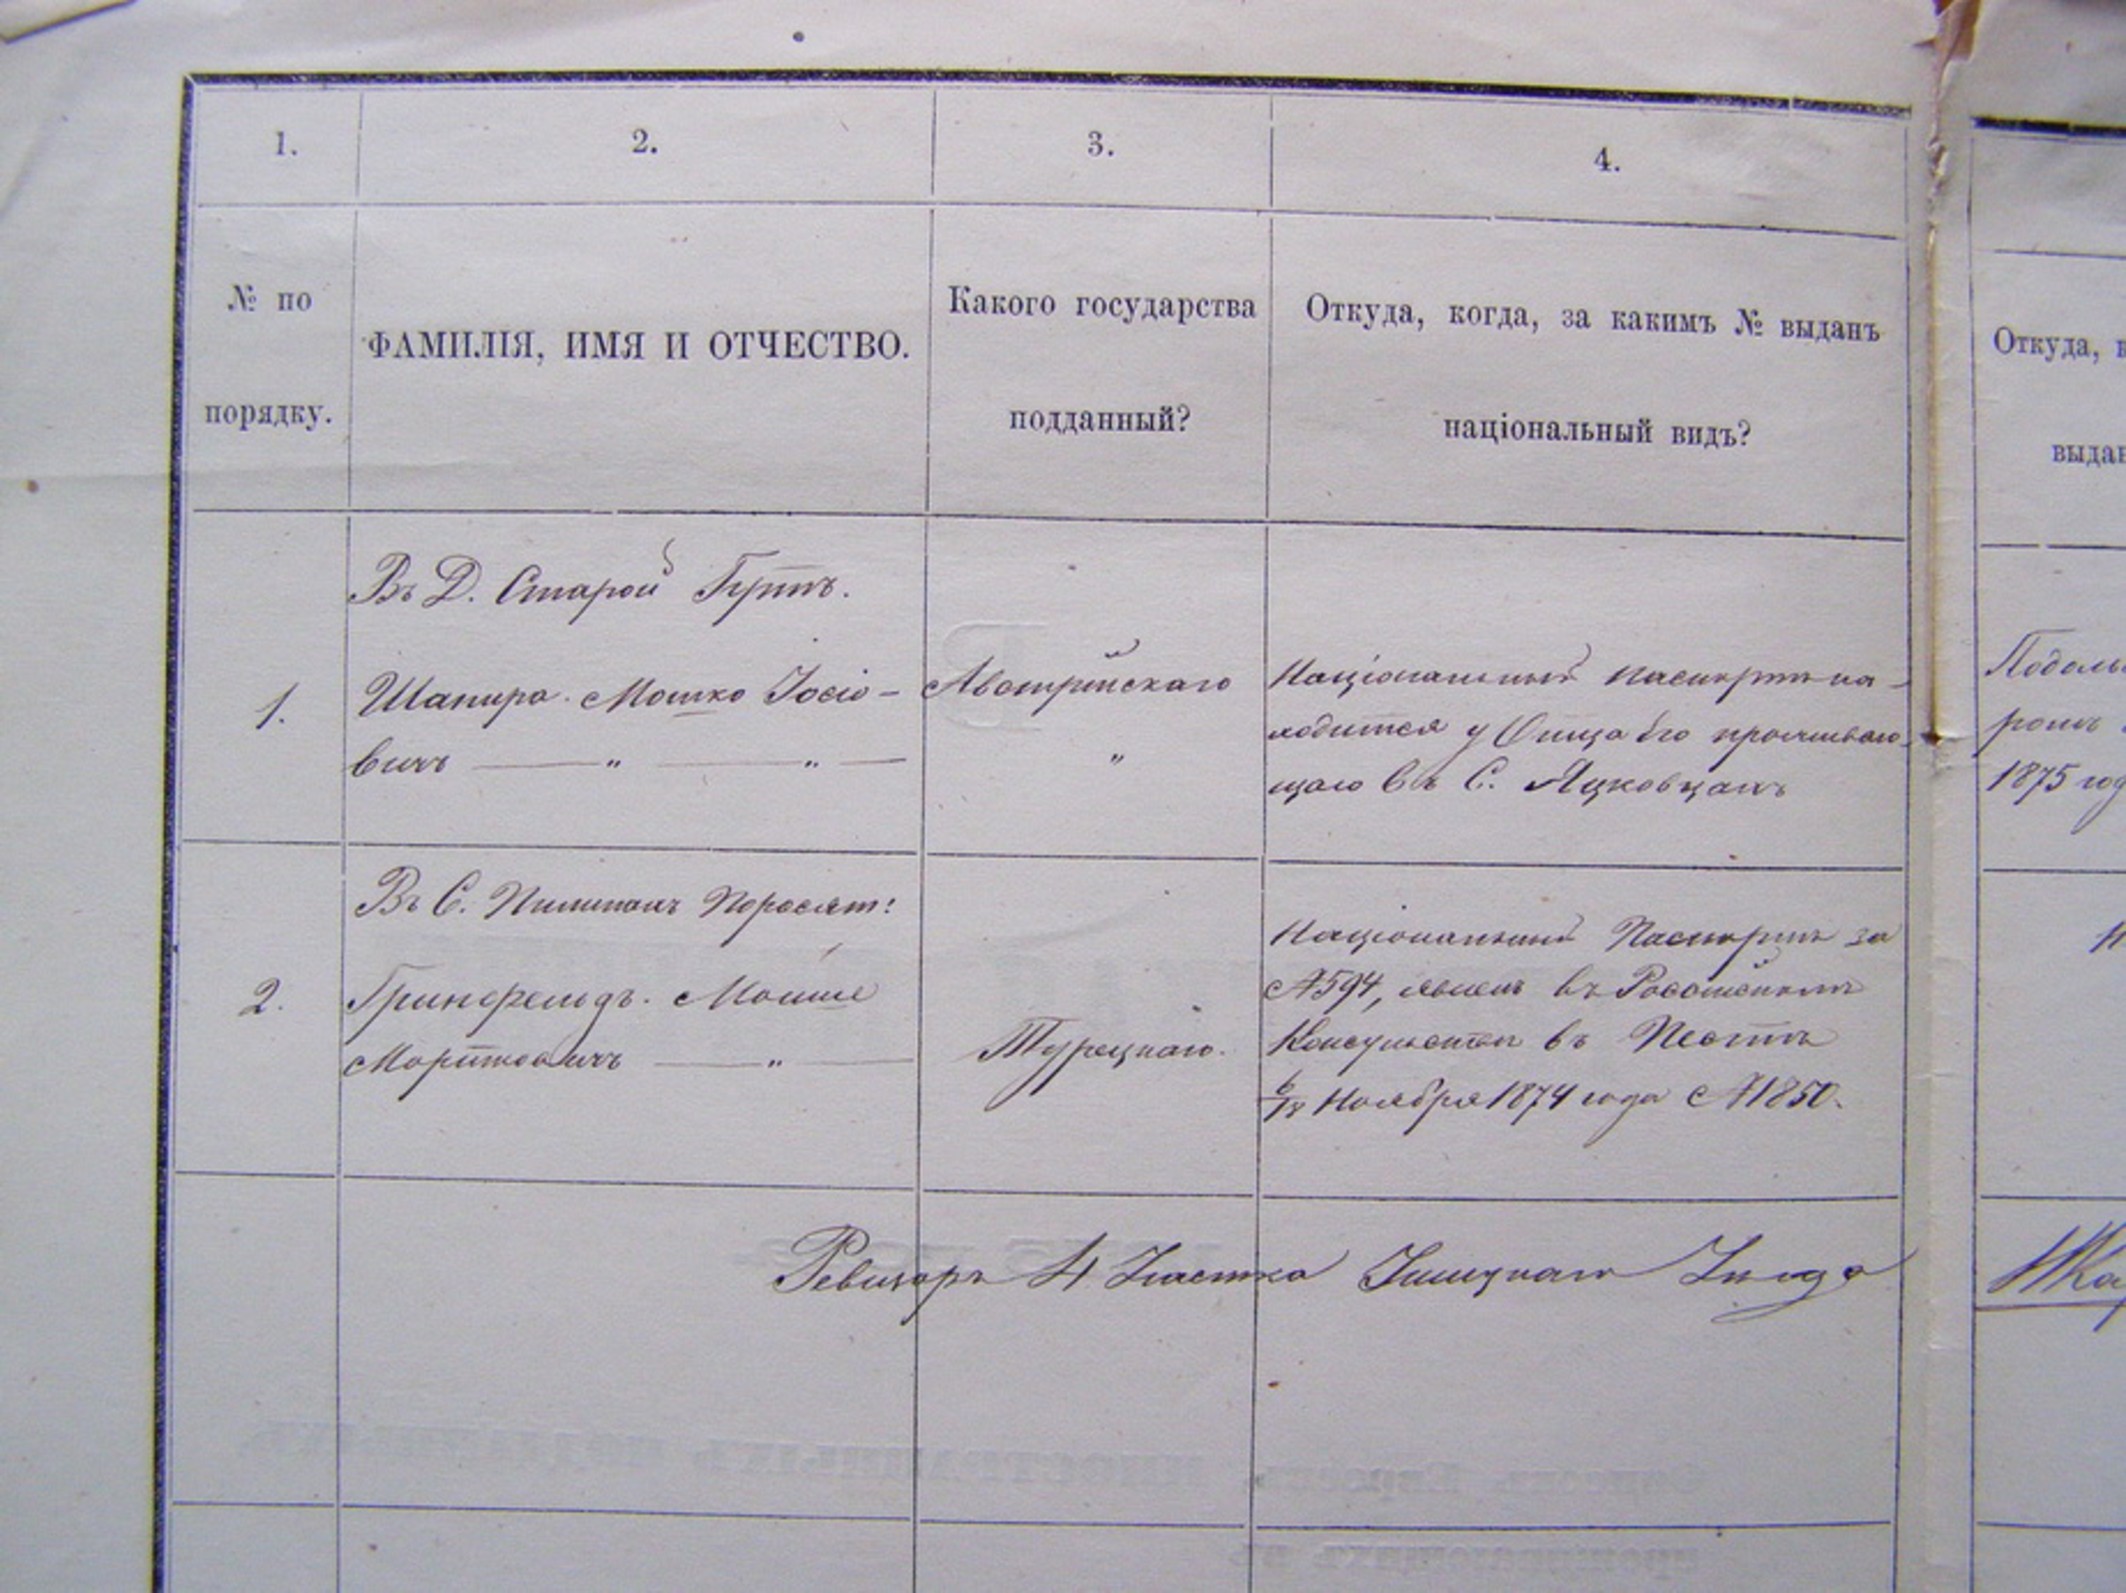 1.
2.
3.
4.
№ по
порядку.
ФАМИЛІЯ, ИМЯ И ОТЧЕСТВО.
Какого государства
подданный?
Откуда, когда, за какимъ № выданъ
національный видъ?
Откуда,
Въ Д. Старой Гутѣ.
1.
Шапиро. Мошко Іосіо-
вичъ — " — " —
Австрійскаго
"
Національный паспортъ на-
ходится у Отца его проживаю-
щаго въ С. Яцковцахъ
1875
Въ С. Пилипахъ Поросят:
2.
Гринфельдъ. Мошше
Моритковичъ — " —
Турецкаго.
Національный Паспортъ за
№594, явленъ въ Россійскомъ
Консульствѣ въ Пестѣ
6/18 Ноября 1874 года №1850.
Ревизоръ 4 Участка Ушицкаго Уѣзда